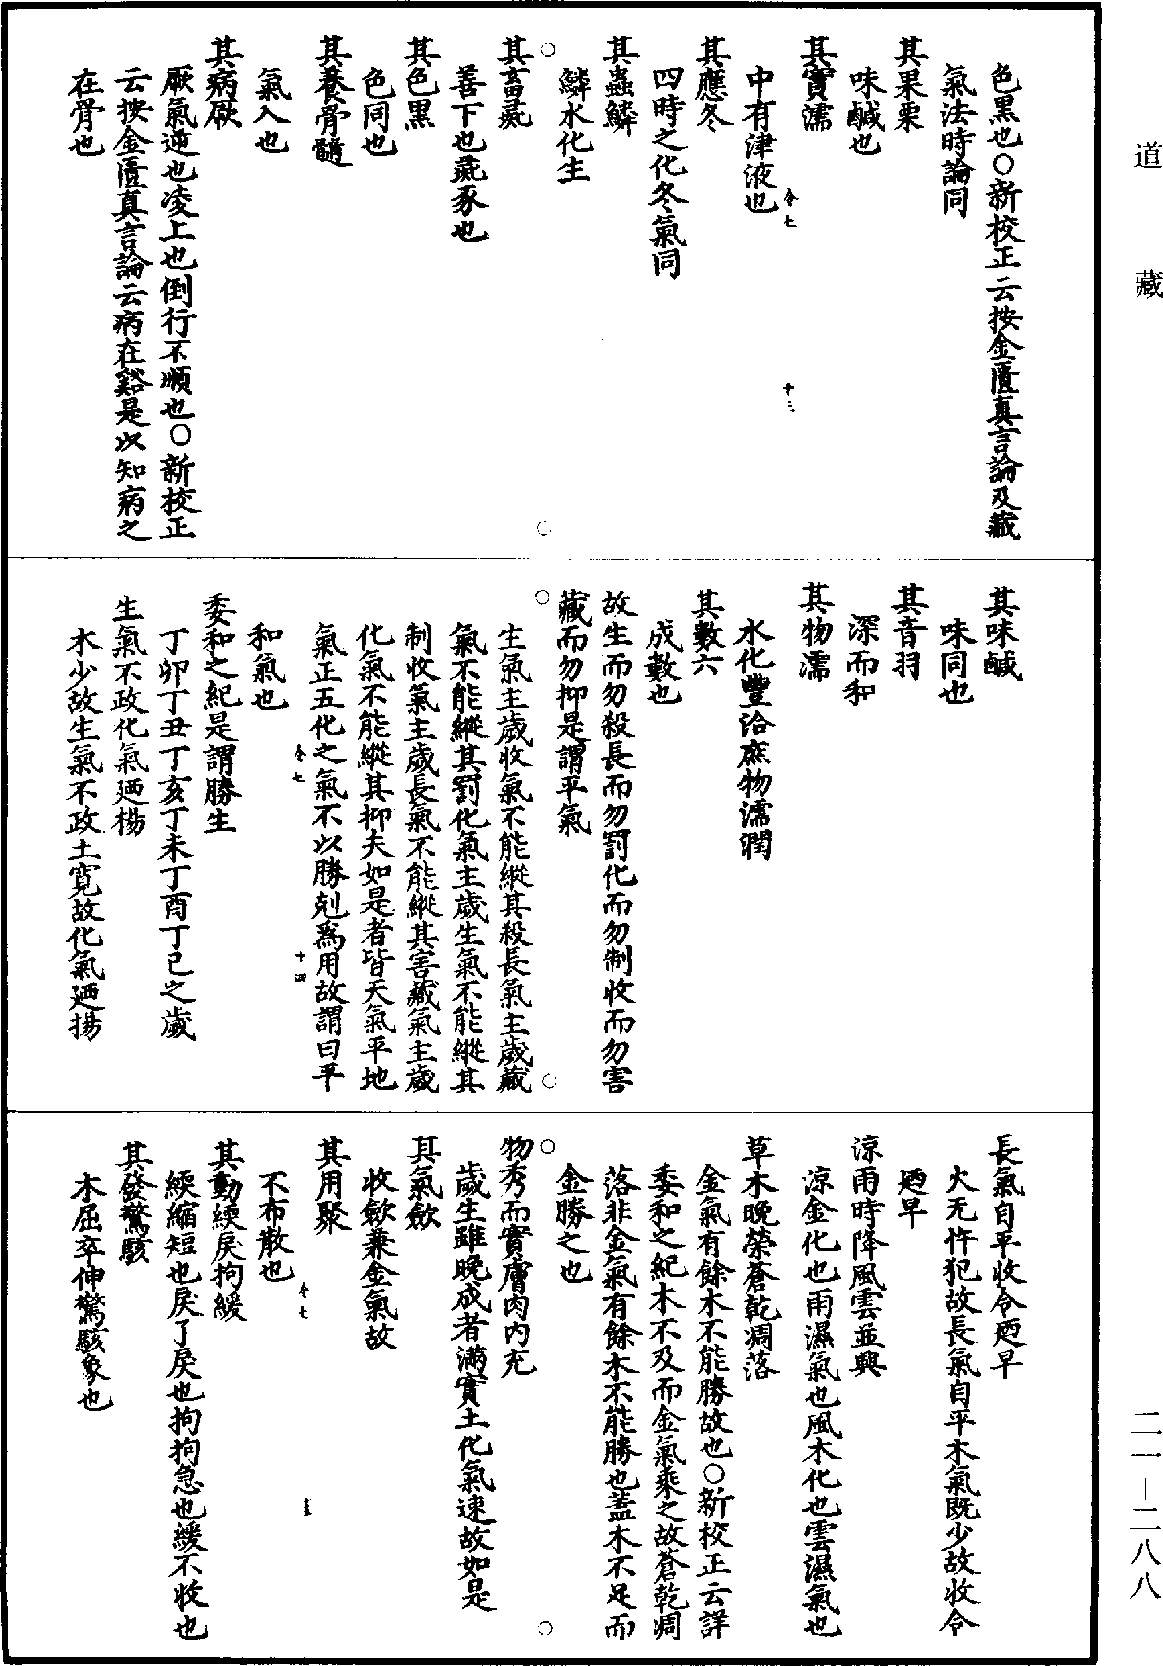 道藏
色黑也○新校正云按金匱真言論及藏
氣法時論同
其果栗
味鹹也
其實濡
中有津液也
令七
十三
其應冬
四時之化冬氣同
其蟲鱗
鱗水化生
其畜彘
善下也彘豕也
其色黑
色同也
其養骨髓
氣入也
其病厥
厥氣逆也凌上也倒行不順也○新校正
云按金匱真言論云病在谿是以知病之
在骨也
其味鹹
味同也
其音羽
深而和
其物濡
水化豐洽庶物濡潤
其數六
成數也
故生而勿殺長而勿罰化而勿制收而勿害
藏而勿抑是謂平氣
生氣主歲收氣不能縱其殺長氣主歲藏
氣不能縱其罰化氣主歲生氣不能縱其
制收氣主歲長氣不能縱其害藏氣主歲
化氣不能縱其抑夫如是者皆天氣平地
氣正五化之氣不以勝剋為用故謂曰平
令七
十四
和氣也
委和之紀是謂勝生
丁卯丁丑丁亥丁未丁酉丁巳之歲
生氣不政化氣迺楊
木少故生氣不政土寬故化氣迺揚
長氣自平收令迺早
火无忤犯故長氣自平木氣既少故收令
迺早
涼雨時降風雲並興
涼金化也雨濕氣也風木化也雲濕氣也
草木晚榮蒼乾凋落
金氣有餘木不能勝故也○新校正云詳
委和之紀木不及而金氣乘之故蒼乾凋
落非金氣有餘木不能勝也蓋木不足而
金勝之也
物秀而實膚肉內充
歲生雖晚成者滿實土化氣速故如是
其氣斂
收斂兼金氣故
其用聚
不布散也
令七
其動緛戾拘緩
緛縮短也戾了戾也拘拘急也緩不收也
其發驚駭
木屈卒伸驚駭象也
二一—二八八